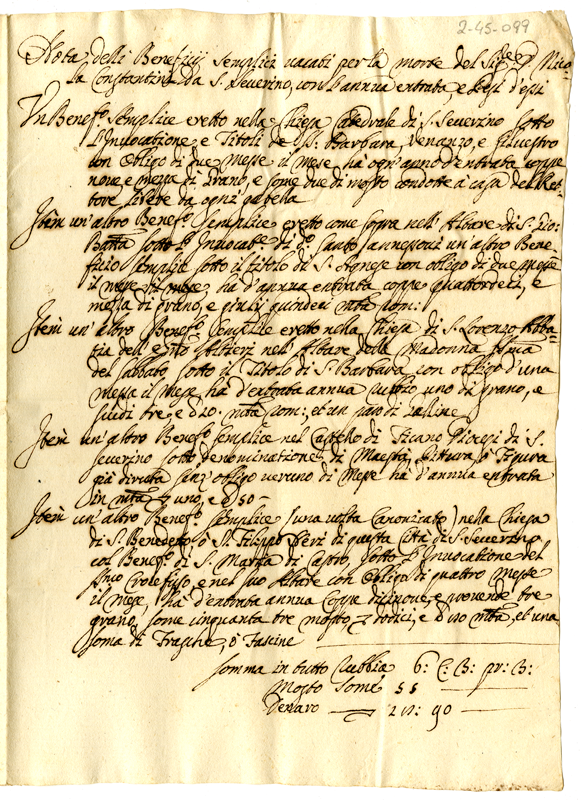 2-45-099
Nota delli Beneficij semplici vacati per la morte del Sig.re D. Nico=
la Constantini da S. Severino, con l'annua entrata e Pesi d'essi
Un Benef.o semplice eretto nella Chiesa Catedrale di S. Severino sotto
l'Invocatione, e Titoli de SS. Barbara, Venanzo, e Silvestro
con obligo di due Messe il Mese, ha ogn'anno d'entrata coppe
nove, e mezza di Grano, e some due di mosto condotte à casa del Ret=
tore libere da ogni gabella
Item un'altro Benef.o semplice eretto come sopra nell'Altare di S. Gio:
Batta sotto l'Invocat.e di d.o Santo annessovi un'altro Bene=
fizio semplice sotto il titolo di S. Agnese con obligo di due messe
il mese, ha d'annua entrata coppe quattordeci, e
mezza di grano, e giulij quindeci mta rom:
Item un'altro Benef.o semplice eretto nella Chiesa di S. Lorenzo Abba=
tia dell' Altieri nell'Altare della Madonna
del Sabbato sotto il Titolo di S. Barbara con obligo d'una
messa il mese ha d'entrata annua rubbio uno di grano, e
scudi tre, e d 20. mta rom: et un paro di Galline
Item un'altro Benef.o semplice nel Castello di Ficano Diocesi di S.
Severino sotto denominatione di Maestà, Pittura, ò Figura
già diruta senz'obligo veruno di Messe ha d'annua entrata
in mta uno, e d 50 -
Item un'altro Benef.o semplice (una volta Canonicato) nella Chiesa
di S. Benedetto, ò S. Filippo Neri di questa Città di S. Severino
col Benef.o di S. Maria di Castro, sotto l'Invocatione del
SS.mo Crocefisso, e nel suo Altare con obligo di quattro Messe
il mese, ha d'entrata annua Coppe dicinove, e provende tre
grano, some cinquanta tre mosto, dodici, e d 20 mta, et una
soma di Frasche, ò Fascine
Somma in tutto Rubbia 6: C: B: pr: B:
Mosto Some 55
Denaro